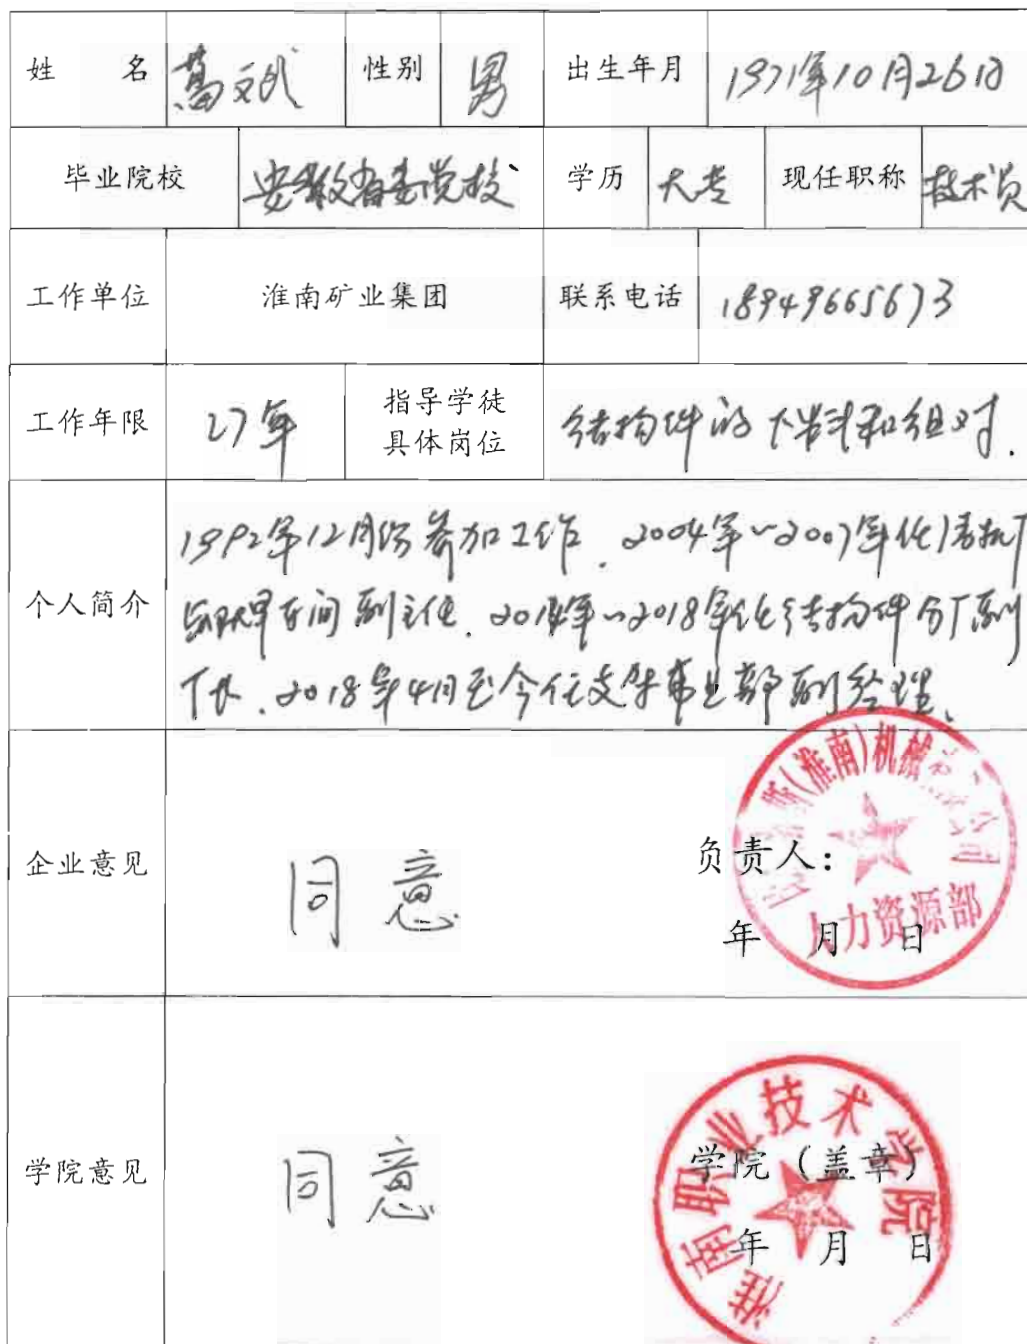 姓 名 葛文斌 性别 男 出生年月 1971年10月26日
毕业院校 安徽省委党校 学历 大专 现任职称 技术员
工作单位 淮南矿业集团 联系电话 18949665673
工作年限 27年 指导学徒
具体岗位 结构件的下料和组对.
个人简介
1992年12月份参加工作.2004年~2007年任结构厂
铆焊车间副主任.2014年~2018年任结构件分厂副
厂长.2018年4月至今任支架事业部副经理.
(淮南)机械
企业意见 同意 负责人:
人力资源部
年 月 日
淮南职业技术学院
学院意见 同意 学院(盖章)
年 月 日